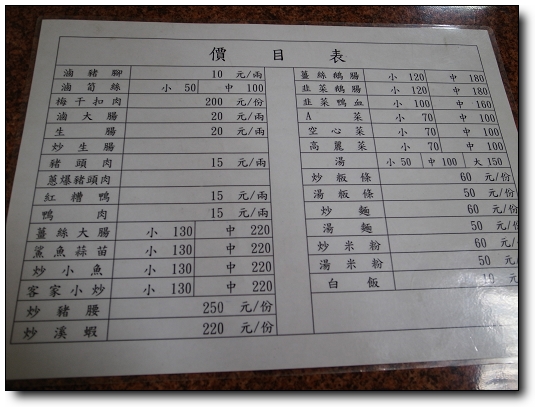 價目表
滷豬腳 10 元/兩
滷筍絲 小 50 中 100
梅干扣肉 200 元/份
滷大腸 20 元/兩
生腸 20 元/兩
炒生腸
豬頭肉 15 元/兩
蔥爆豬頭肉
紅糟鴨 15 元/兩
鴨肉 15 元/兩
薑絲大腸 小 130 中 220
鯊魚蒜苗 小 130 中 220
炒小魚 小 130 中 220
客家小炒 小 130 中 220
炒豬腰 250 元/份
炒溪蝦 220 元/份
薑絲鵝腸 小 120 中 180
韭菜鵝腸 小 120 中 180
韭菜鴨血 小 100 中 160
A菜 小 70 中 100
空心菜 小 70 中 100
高麗菜 小 70 中 100
湯 小 50 中 100 大 150
炒粄條 60 元/份
湯粄條 50 元/份
炒麵 60 元/份
湯麵 50 元/份
炒米粉 60 元/份
湯米粉 50 元/份
白飯 10 元/